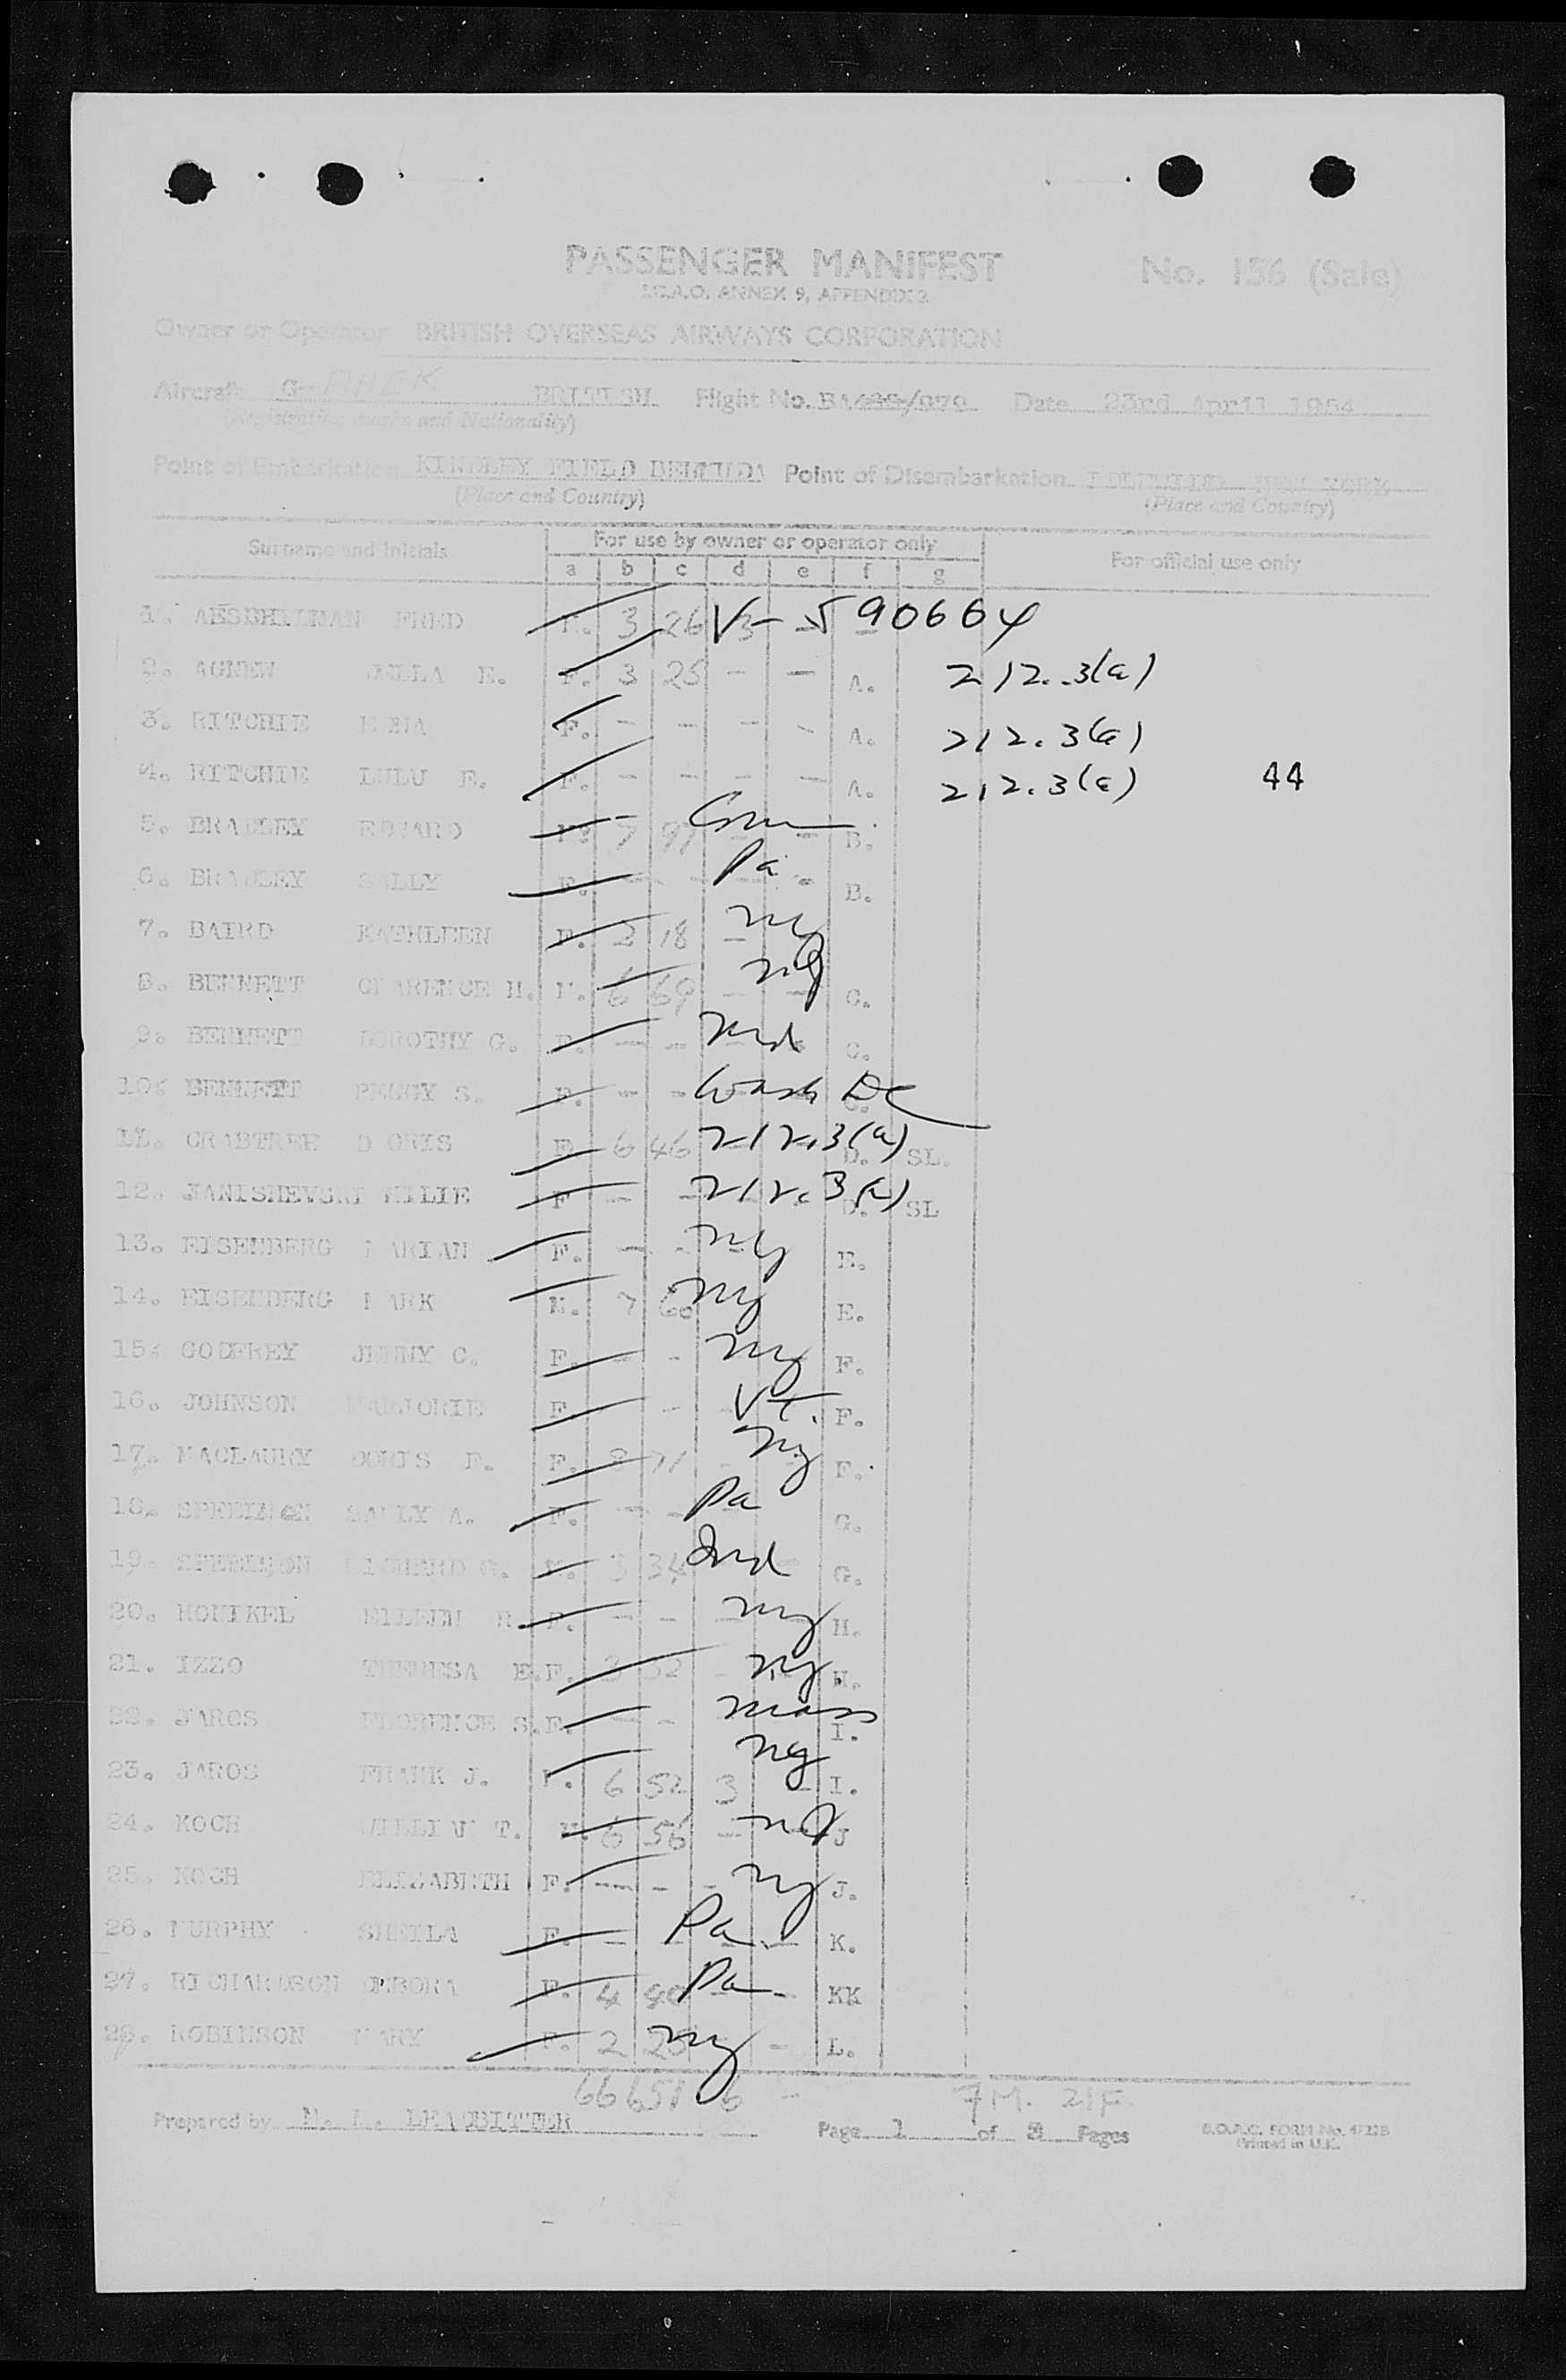 PASSENGER MANIFEST No. 156 (Sale)
I.C.A.O. ANNEX 9, APPENDIX 2
Owner or Operator BRITISH OVERSEAS AIRWAYS CORPORATION
Aircraft G-AHEK BRITISH Flight No. BA Date 23rd April 1954
(Registration marks and Nationality)
Point of Embarkation KINDLEY FIELD BERMUDA Point of Disembarkation IDLEWILD NEW YORK
(Place and Country) (Place and Country)
Surname and Initials For use by owner or operator only For official use only
a b c d e f g
1. FRED 3 26 V-590664
2. AGNEW E. F. 3 25 - - A. 212.3(a)
3. RITCHIE F. - - - - A. 212.3(a)
4. RITCHIE LULU E. F. - - - - A. 212.3(a) 44
5. BRADLEY EDWARD 7 97 Conn B.
6. BRADLEY SALLY F. - - Pa - B.
7. BAIRD KATHLEEN F. 2 18 - ny
8. BENNETT CLARENCE H. M. 6 69 - - ny C.
9. BENNETT DOROTHY G. F. - - C.
10. BENNETT PEGGY S. F. - - Wash DC
11. CRABTREE DORIS F. 6 46 212.3(a) D. SL.
12. JANISHEVSKI MILIE F - - 212.3(a) D. SL
13. EISENBERG MARIAN F. - - ny E.
14. EISENBERG MARK M. 7 60 ny E.
15. GODFREY JENNY C. F. - - ny F.
16. JOHNSON MARJORIE F. - Vt. F.
17. MACLAURY DORIS F. F. 8 71 - ny F.
18. SALLY A. F. - - Pa G.
19. RICHARD G. M. 3 34 Ind G.
20. HONIKEL EILEEN F. - - - ny H.
21. IZZO THERESA E. F. 3 32 ny H.
22. JAROS FLORENCE S. F. - - mass I.
23. JAROS FRANK J. M. 6 52 3 - ny I.
24. KOCH WILLIAM T. M. 6 56 - J
25. KOCH ELIZABETH F. - - - ny J.
26. MURPHY SHEILA F. - - Pa - K.
27. RICHARDSON F. 4 40 Pa - KK
28. ROBINSON MARY F. 2 25 ny - L.
66 657 6 - 7M. 21F.
Prepared by LEADBITTER Page 1 of 3 Pages B.O.A.C. FORM No.
Printed in U.K.